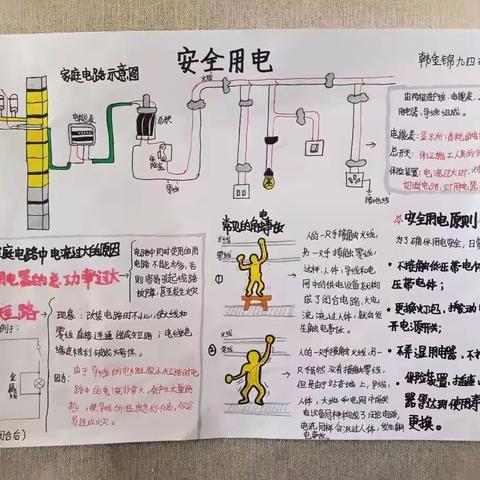 安全用电
韩金锦九四
家庭电路示意图
火线
电能表
总开关
保险盒
零线
接地线
由两根进户线、电能表、
用电器、导线组成。
电能表:显示所消耗的电
总开关:保证施工人员的
保险装置:电流过大时,
切断电路,对用电器
家庭电路中电流过大的原因
用电器的总功率过大
家庭电路中同时使用的用
电路不能太多,否
则容易引起线路
故障,甚至发生火灾
短路
现象:改装电路时不小心,使火线和
零线直接连通造成短路;电线绝
缘皮破损或老化。
例子:
金属线
原因:由于导线的电阻很小,短路时电
路中的电流非常大,会产生大量的
热,使导线的温度急剧升高,很容
易造成火灾。
闭合后)
常见的触电事故
火线
零线
①
人的一只手接触火线,
另一只手接触零线,
这样,人体、导线和电
网中的供电设备就构
成了闭合电路,电
流流过人体,就会发
生触电事故。
火线
零线
②
人的一只手接触火线,另一
只手虽然没有接触零线,
但是由于站在地上,导线、
人体、大地和电网中的供
电设备同样构成了闭合电路,
电流同样会流过人体,发生触
电事故。
安全用电原则
为了确保用电安全,日常
• 不接触低压带电体
压带电体;
• 更换灯泡、搬动电
开电源开关;
• 不弄湿用电器,不
• 保险装置、插座
器等达到使用寿
更换。